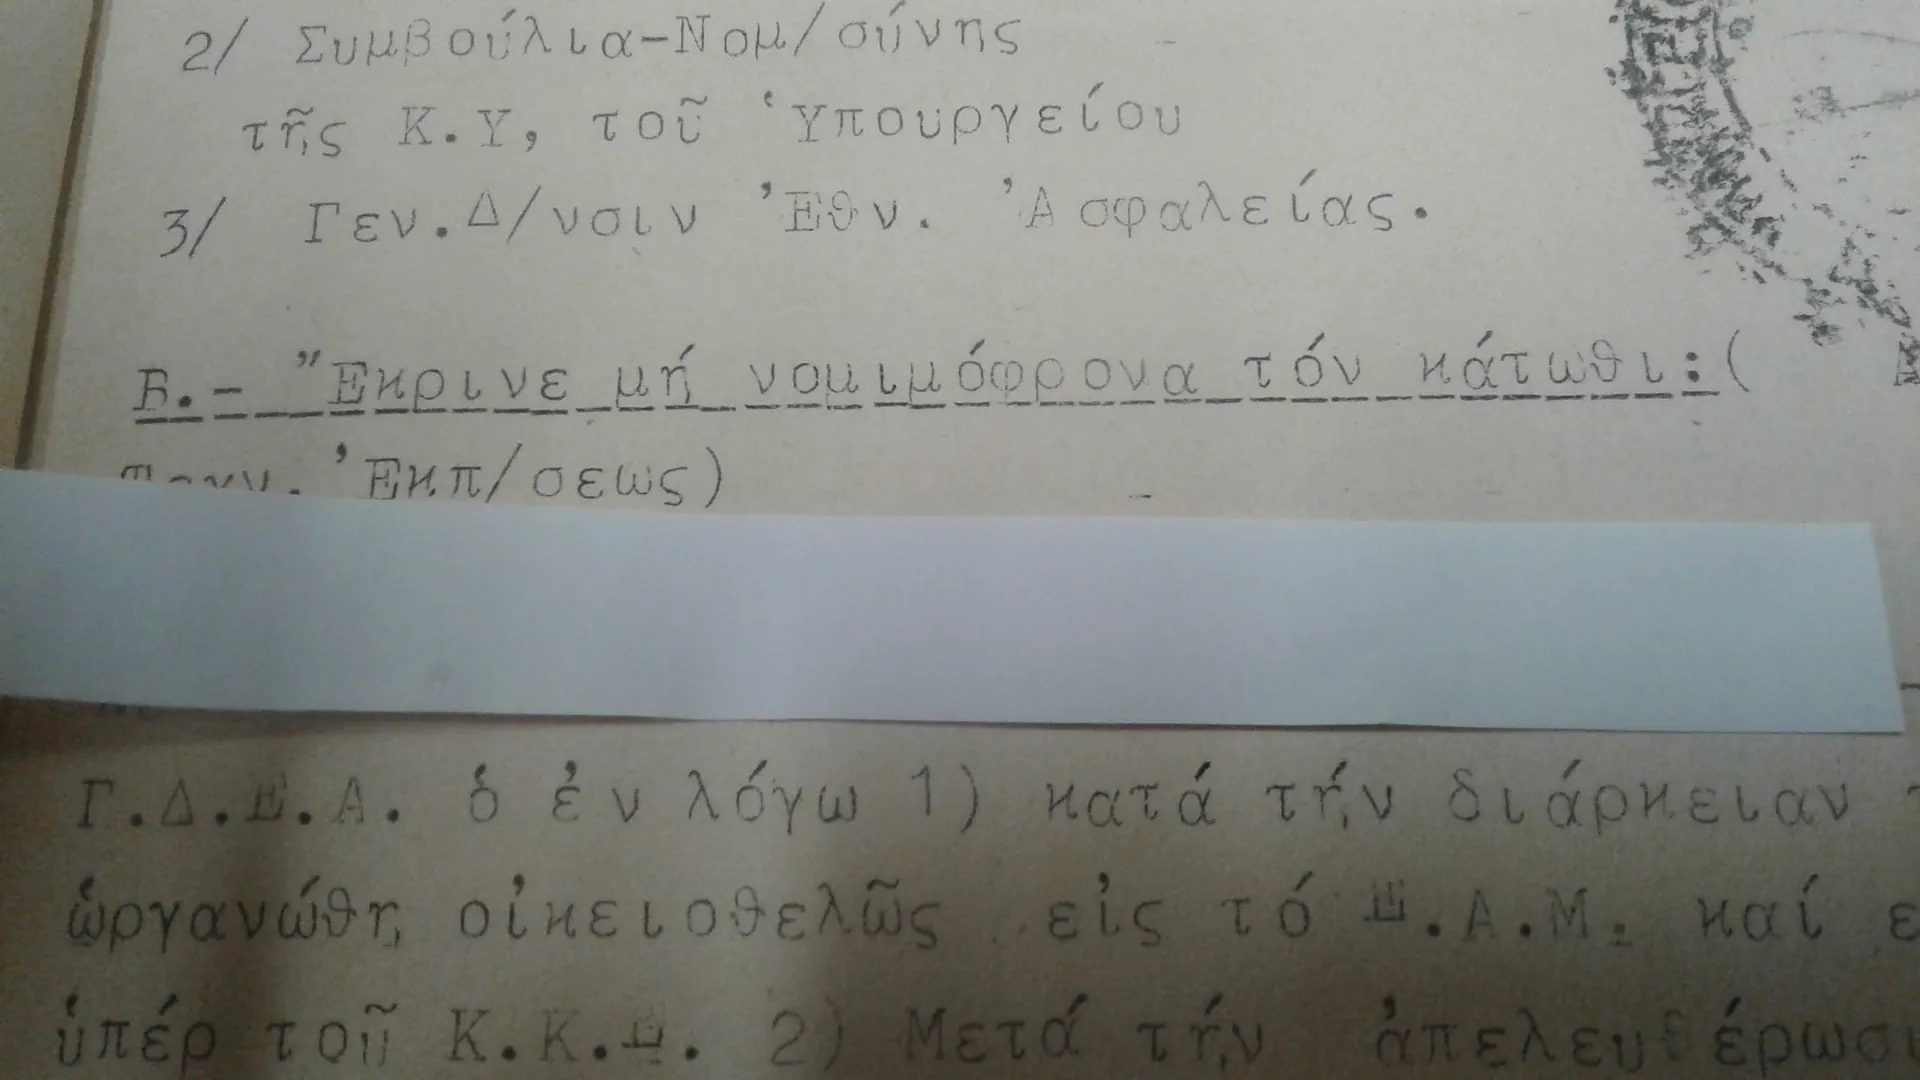 2/ Συμβούλια-Νομ/σύνης
τῆς Κ.Υ, τοῦ Ὑπουργείου
3/ Γεν.Δ/νσιν Ἐθν. Ἀσφαλείας.
Β.- "Εκρινε μή νομιμόφρονα τόν κάτωθι:(
Ἐκπ/σεως)
Γ.Δ.Ε.Α. ὁ ἐν λόγω 1) κατά τήν διάρκειαν
ὠργανώθη οἰκειοθελῶς εἰς τό Ε.Α.Μ. καί
ὑπέρ τοῦ Κ.Κ.Ε. 2) Μετά τήν